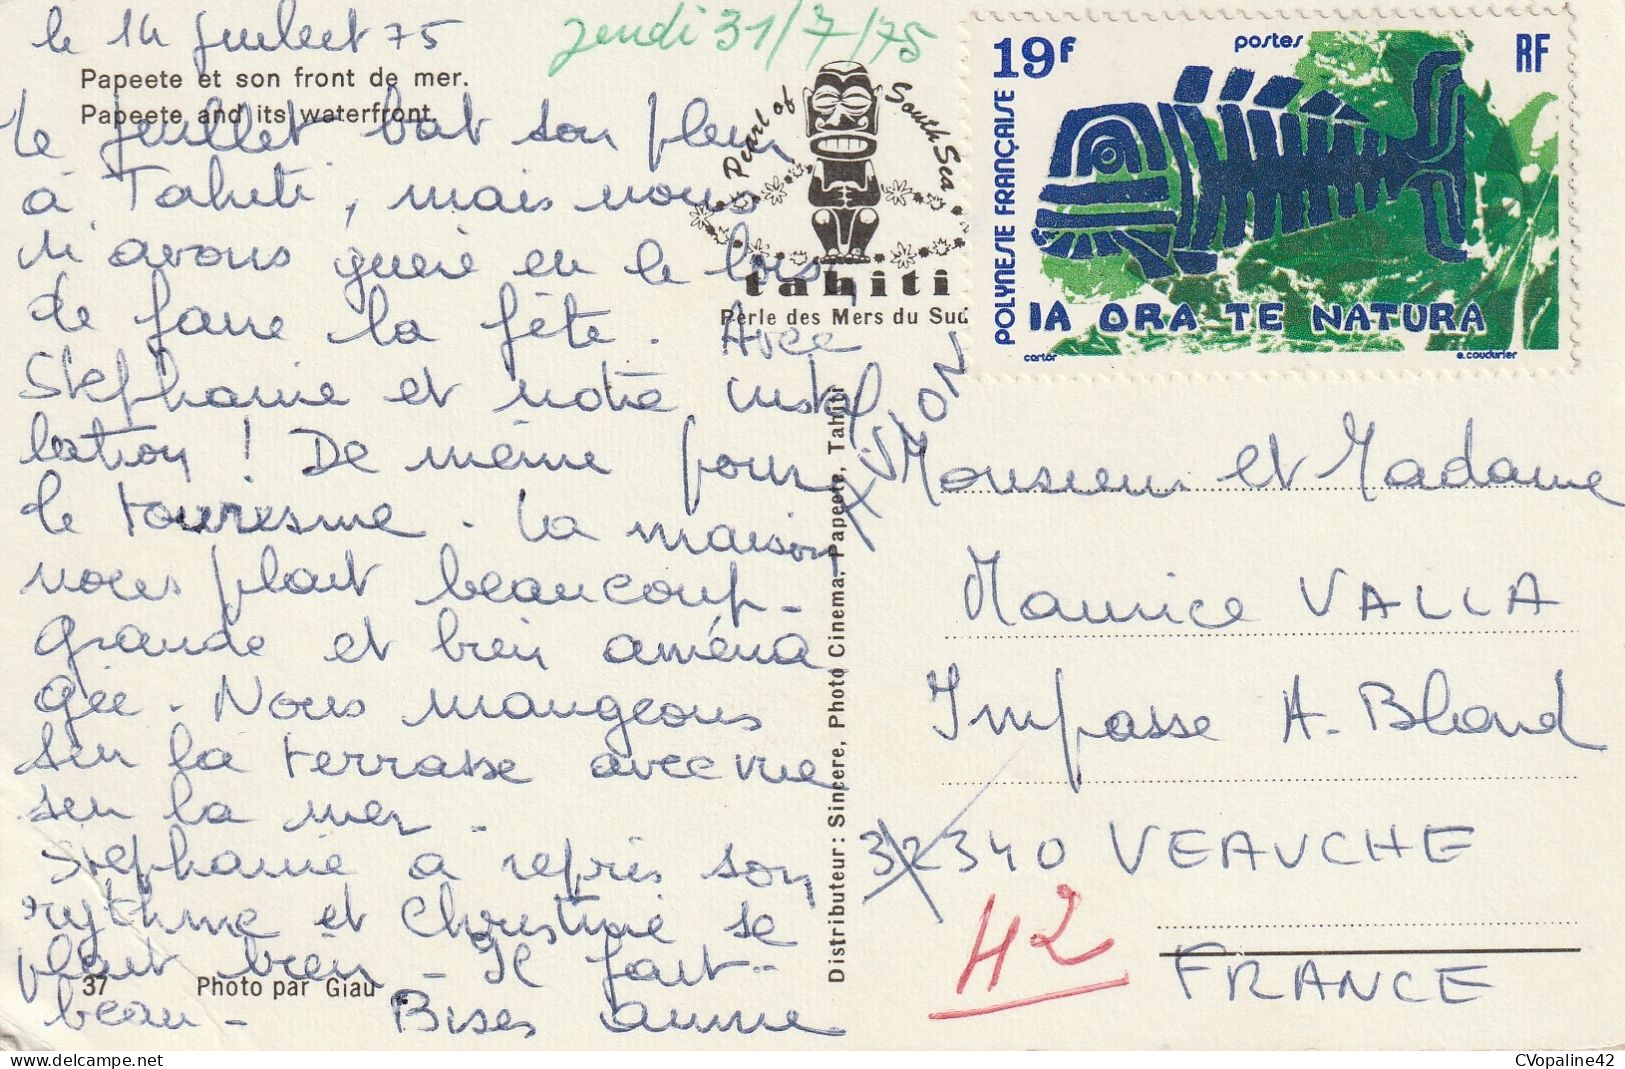 le 14 Juillet 75
jeudi 31/7/75
Papeete et son front de mer.
Papeete and its waterfront.
Le Juillet bat son plein
à Tahiti, mais nous
n'avons guère eu le loisir
de faire la fête. Avec
Stéphanie et notre instal
lation ! De même pour
le tourisme. La maison
nous plait beaucoup -
grande et bien aména
gée. Nous mangeons
sur la terrasse avec vue
sur la mer.
Stéphanie a repris son
rythme et Christine se
plait bien - Il fait
beau - Bises Anne
37 Photo par Giau
Pearl of South Sea
tahiti
Perle des Mers du Sud
PAR AVION
Distributeur: Sincere, Photo Cinema, Papeete, Tahiti
19F postes RF
POLYNESIE FRANÇAISE
IA ORA TE NATURA
cartor e.coudurier
Monsieur et Madame
Maurice VALLA
Impasse A. Blond
32340 VEAUCHE
42
FRANCE
CVopaline42